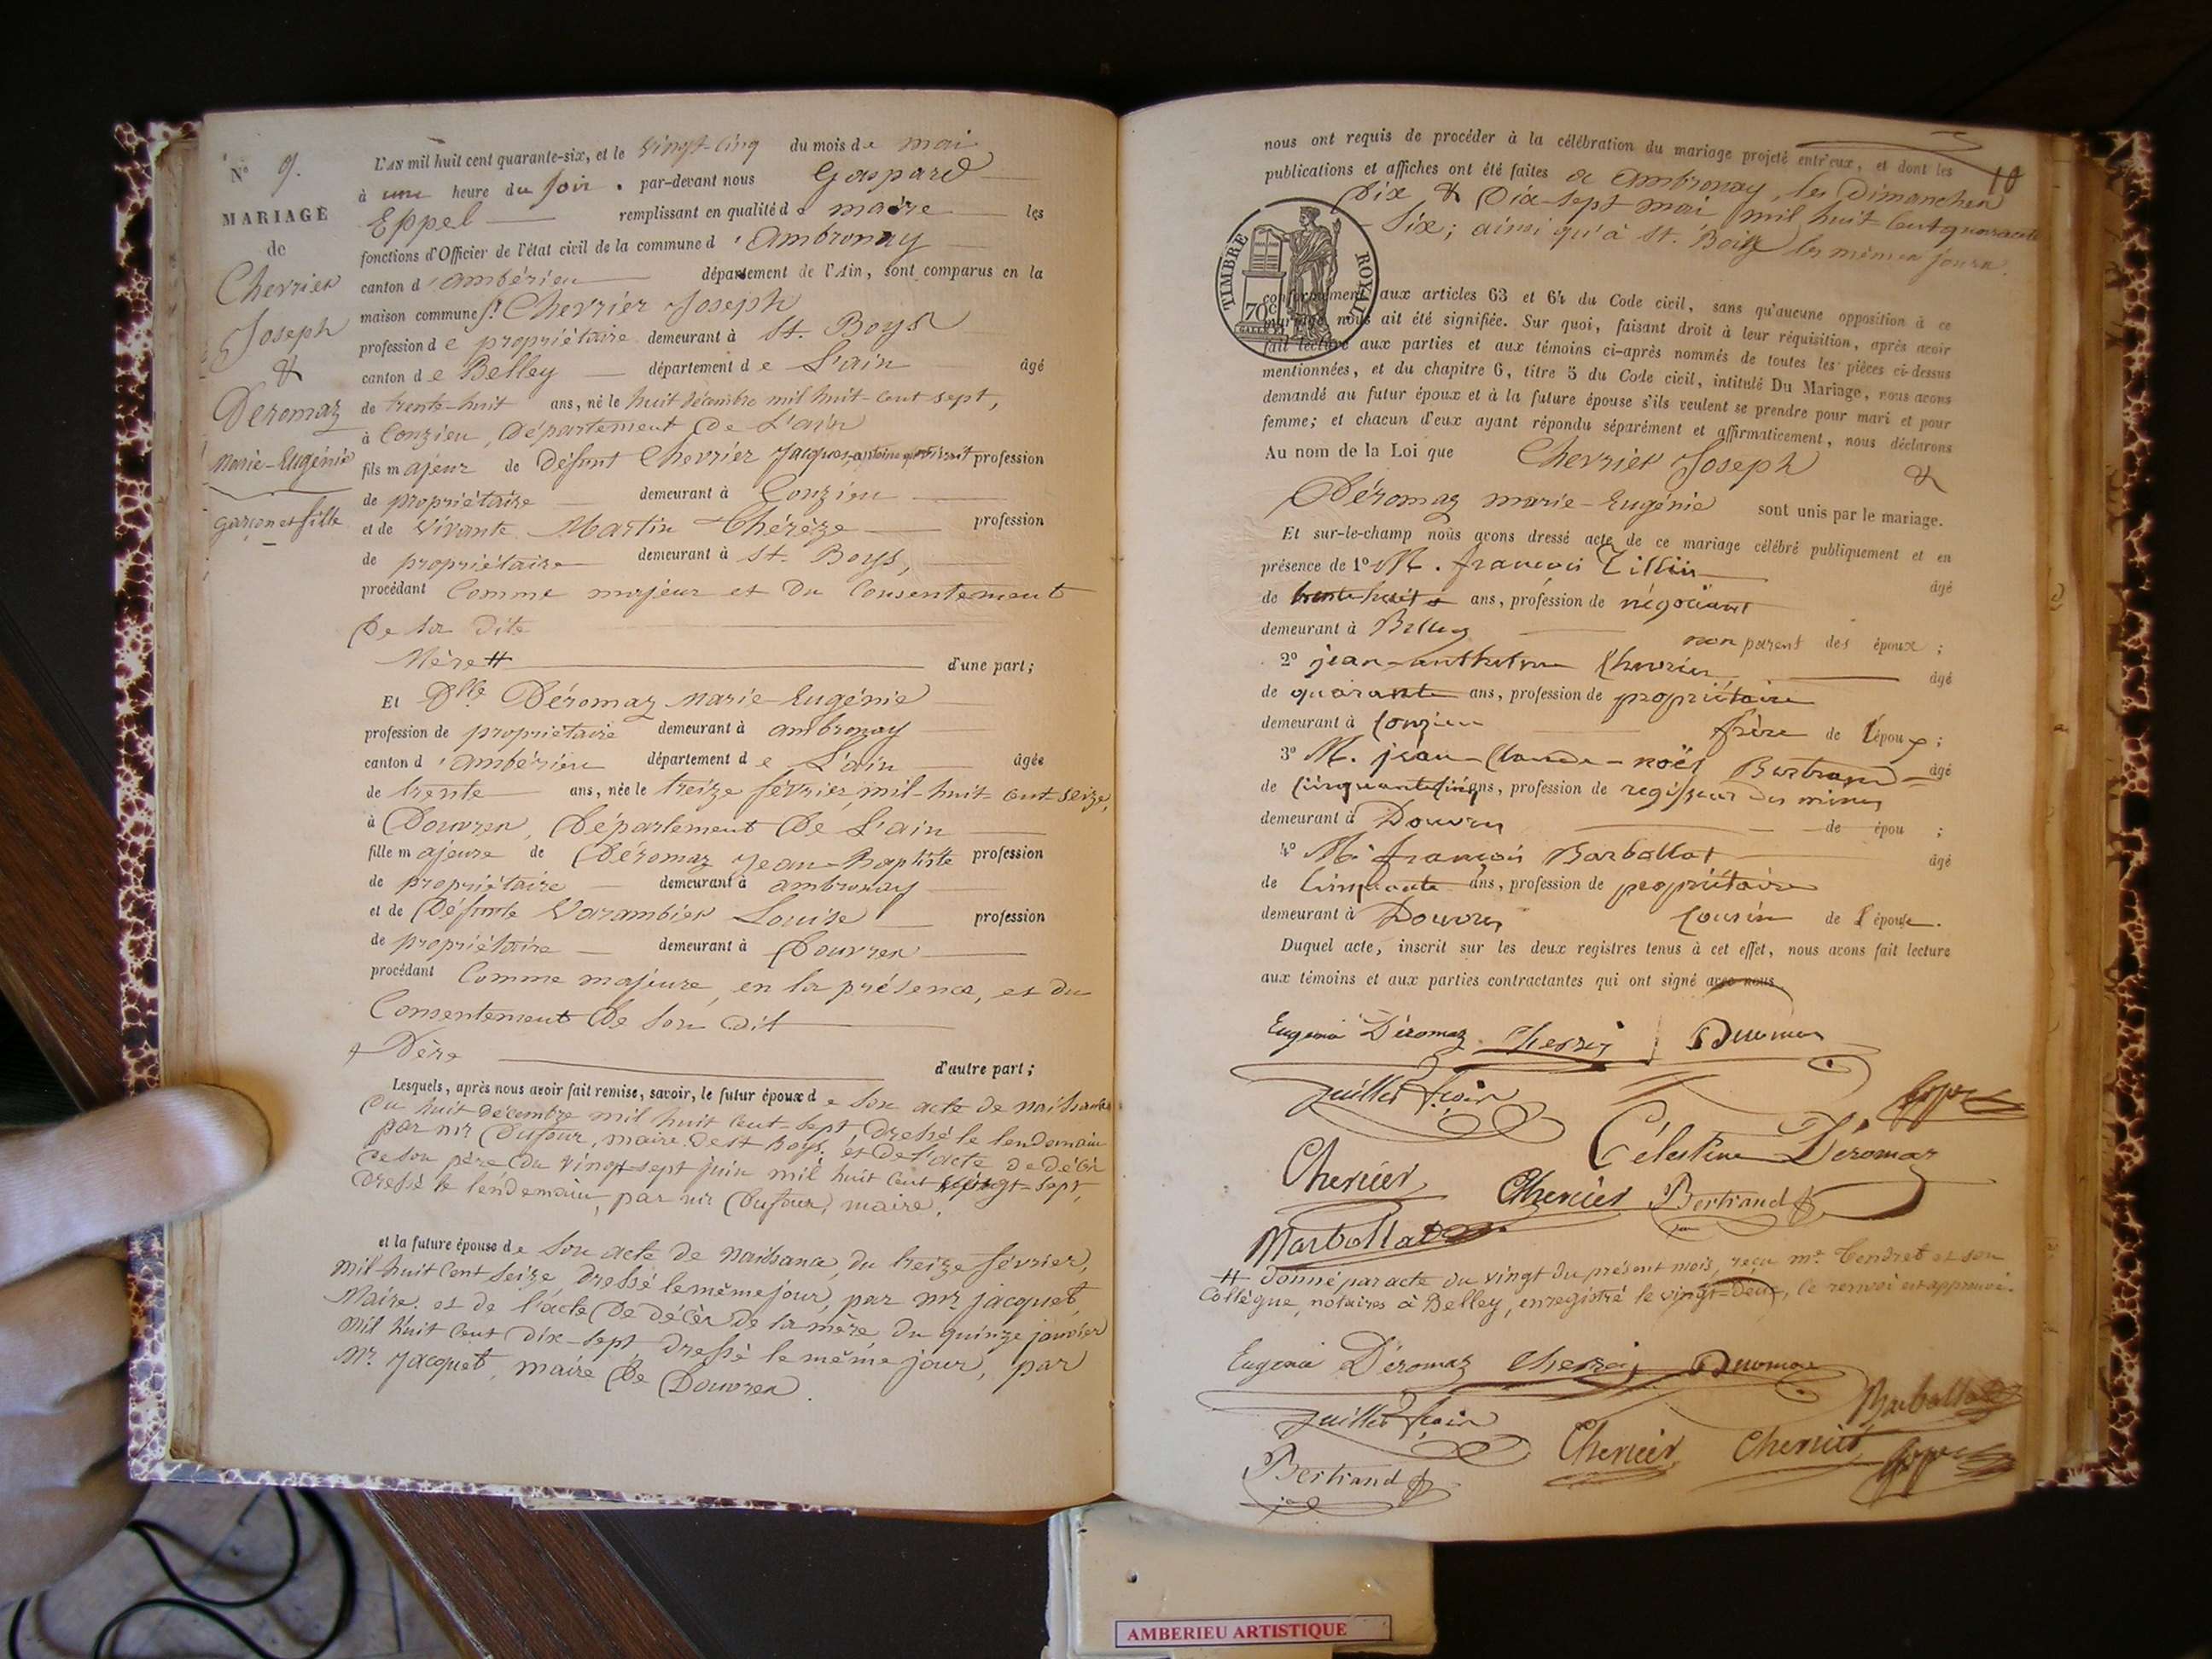 N° 9.
MARIAGE
de
Chevrier
Joseph
&
Deromaz
Marie-Eugénie
garçon et fille
L'AN mil huit cent quarante-six, et le vingt-cinq du mois de mai
à une heure du soir. par-devant nous Gaspard
Eppel remplissant en qualité de maire les
fonctions d'Officier de l'état civil de la commune d'Ambronay
canton d'ambérieu département de l'Ain, sont comparus en la
maison commune Sr Chevrier Joseph
profession de propriétaire demeurant à St. Boys
canton de Belley département de L'ain âgé
de trente-huit ans, né le huit décembre mil huit-cent sept,
à Conzieu, Département De L'ain
fils majeur de Défunt Chevrier Jacques-antoine profession
de propriétaire demeurant à Conzieu
et de vivante Martin Thérèze profession
de propriétaire demeurant à St. Boys,
procédant Comme majeur et Du Consentement
De sa Dite
Mère # d'une part;
Et Dlle Déromaz Marie-Eugénie
profession de propriétaire demeurant à ambronay
canton d'ambérieu département de L'ain âgée
de trente ans, née le treize février mil-huit-cent-seize,
à Douvres, Département De L'ain
fille majeure de Déromaz Jean-Baptiste profession
de propriétaire demeurant à ambronay
et de Défunte Varambier Louise profession
de propriétaire demeurant à Douvres
procédant Comme majeure, en la présence, et du
Consentement De son Dit
Père d'autre part;
Lesquels, après nous avoir fait remise, savoir, le futur époux de son acte de naissance
Du huit décembre mil huit cent-sept, Dressé le lendemain
par mr Dufour, maire de St Boys, et De l'acte de décès
de son père Du vingt-sept juin mil huit cent vingt-sept,
Dressé le lendemain, par mr Dufour, maire,
et la future épouse de son acte de naissance, du treize février,
mil-huit cent seize, Dressé le même jour, par mr jacquet,
Maire. et de l'acte De décès de sa mère, du quinze janvier
mil huit cent Dix-sept Dressé le même jour, par
Mr. Jacquet, maire De Douvres.
10
nous ont requis de procéder à la célébration du mariage projeté entr'eux, et dont les
publications et affiches ont été faites à Ambronay, les Dimanches
Dix & Dix-sept mai mil huit-cent quarante
Six; ainsi qu'à St. Boys les mêmes jours.
TIMBRE ROYAL
70c
conformément aux articles 63 et 64 du Code civil, sans qu'aucune opposition à ce
mariage nous ait été signifiée. Sur quoi, faisant droit à leur réquisition, après avoir
fait lecture aux parties et aux témoins ci-après nommés de toutes les pièces ci-dessus
mentionnées, et du chapitre 6, titre 5 du Code civil, intitulé Du Mariage, nous avons
demandé au futur époux et à la future épouse s'ils veulent se prendre pour mari et pour
femme; et chacun d'eux ayant répondu séparément et affirmativement, nous déclarons
Au nom de la Loi que Chevrier Joseph &
Déromaz marie-Eugénie sont unis par le mariage.
Et sur-le-champ nous avons dressé acte de ce mariage célébré publiquement et en
présence de 1° M. françois âgé
de trente-huit ans, profession de négociant
demeurant à Belley non parent des époux;
2° jean-anthelme Chevrier âgé
de quarante ans, profession de propriétaire
demeurant à Conzieu frère de l'époux;
3° M. jean-Claude-noël Bertrand âgé
de Cinquante-Cinq ans, profession de regisseur des mines
demeurant à Douvres de épou ;
4° M. françois Barbollat âgé
de Cinquante ans, profession de propriétaire
demeurant à Douvres Cousin de l'épouse.
Duquel acte, inscrit sur les deux registres tenus à cet effet, nous avons fait lecture
aux témoins et aux parties contractantes qui ont signé avec nous.
Eugenie Déromaz Chevrier Deromas
Célestine Déromaz
Chevrier Chevrier Bertrand
Barbollat
# donné par acte du vingt du présent mois, reçu me. Tendret et son
Collègue, notaires à Belley, enregistré le vingt-deux, le renvoi est approuvé.
Eugenie Déromaz Chevrier Deromas
Barbollat
Bertrand Chevrier Chevrier
AMBERIEU ARTISTIQUE